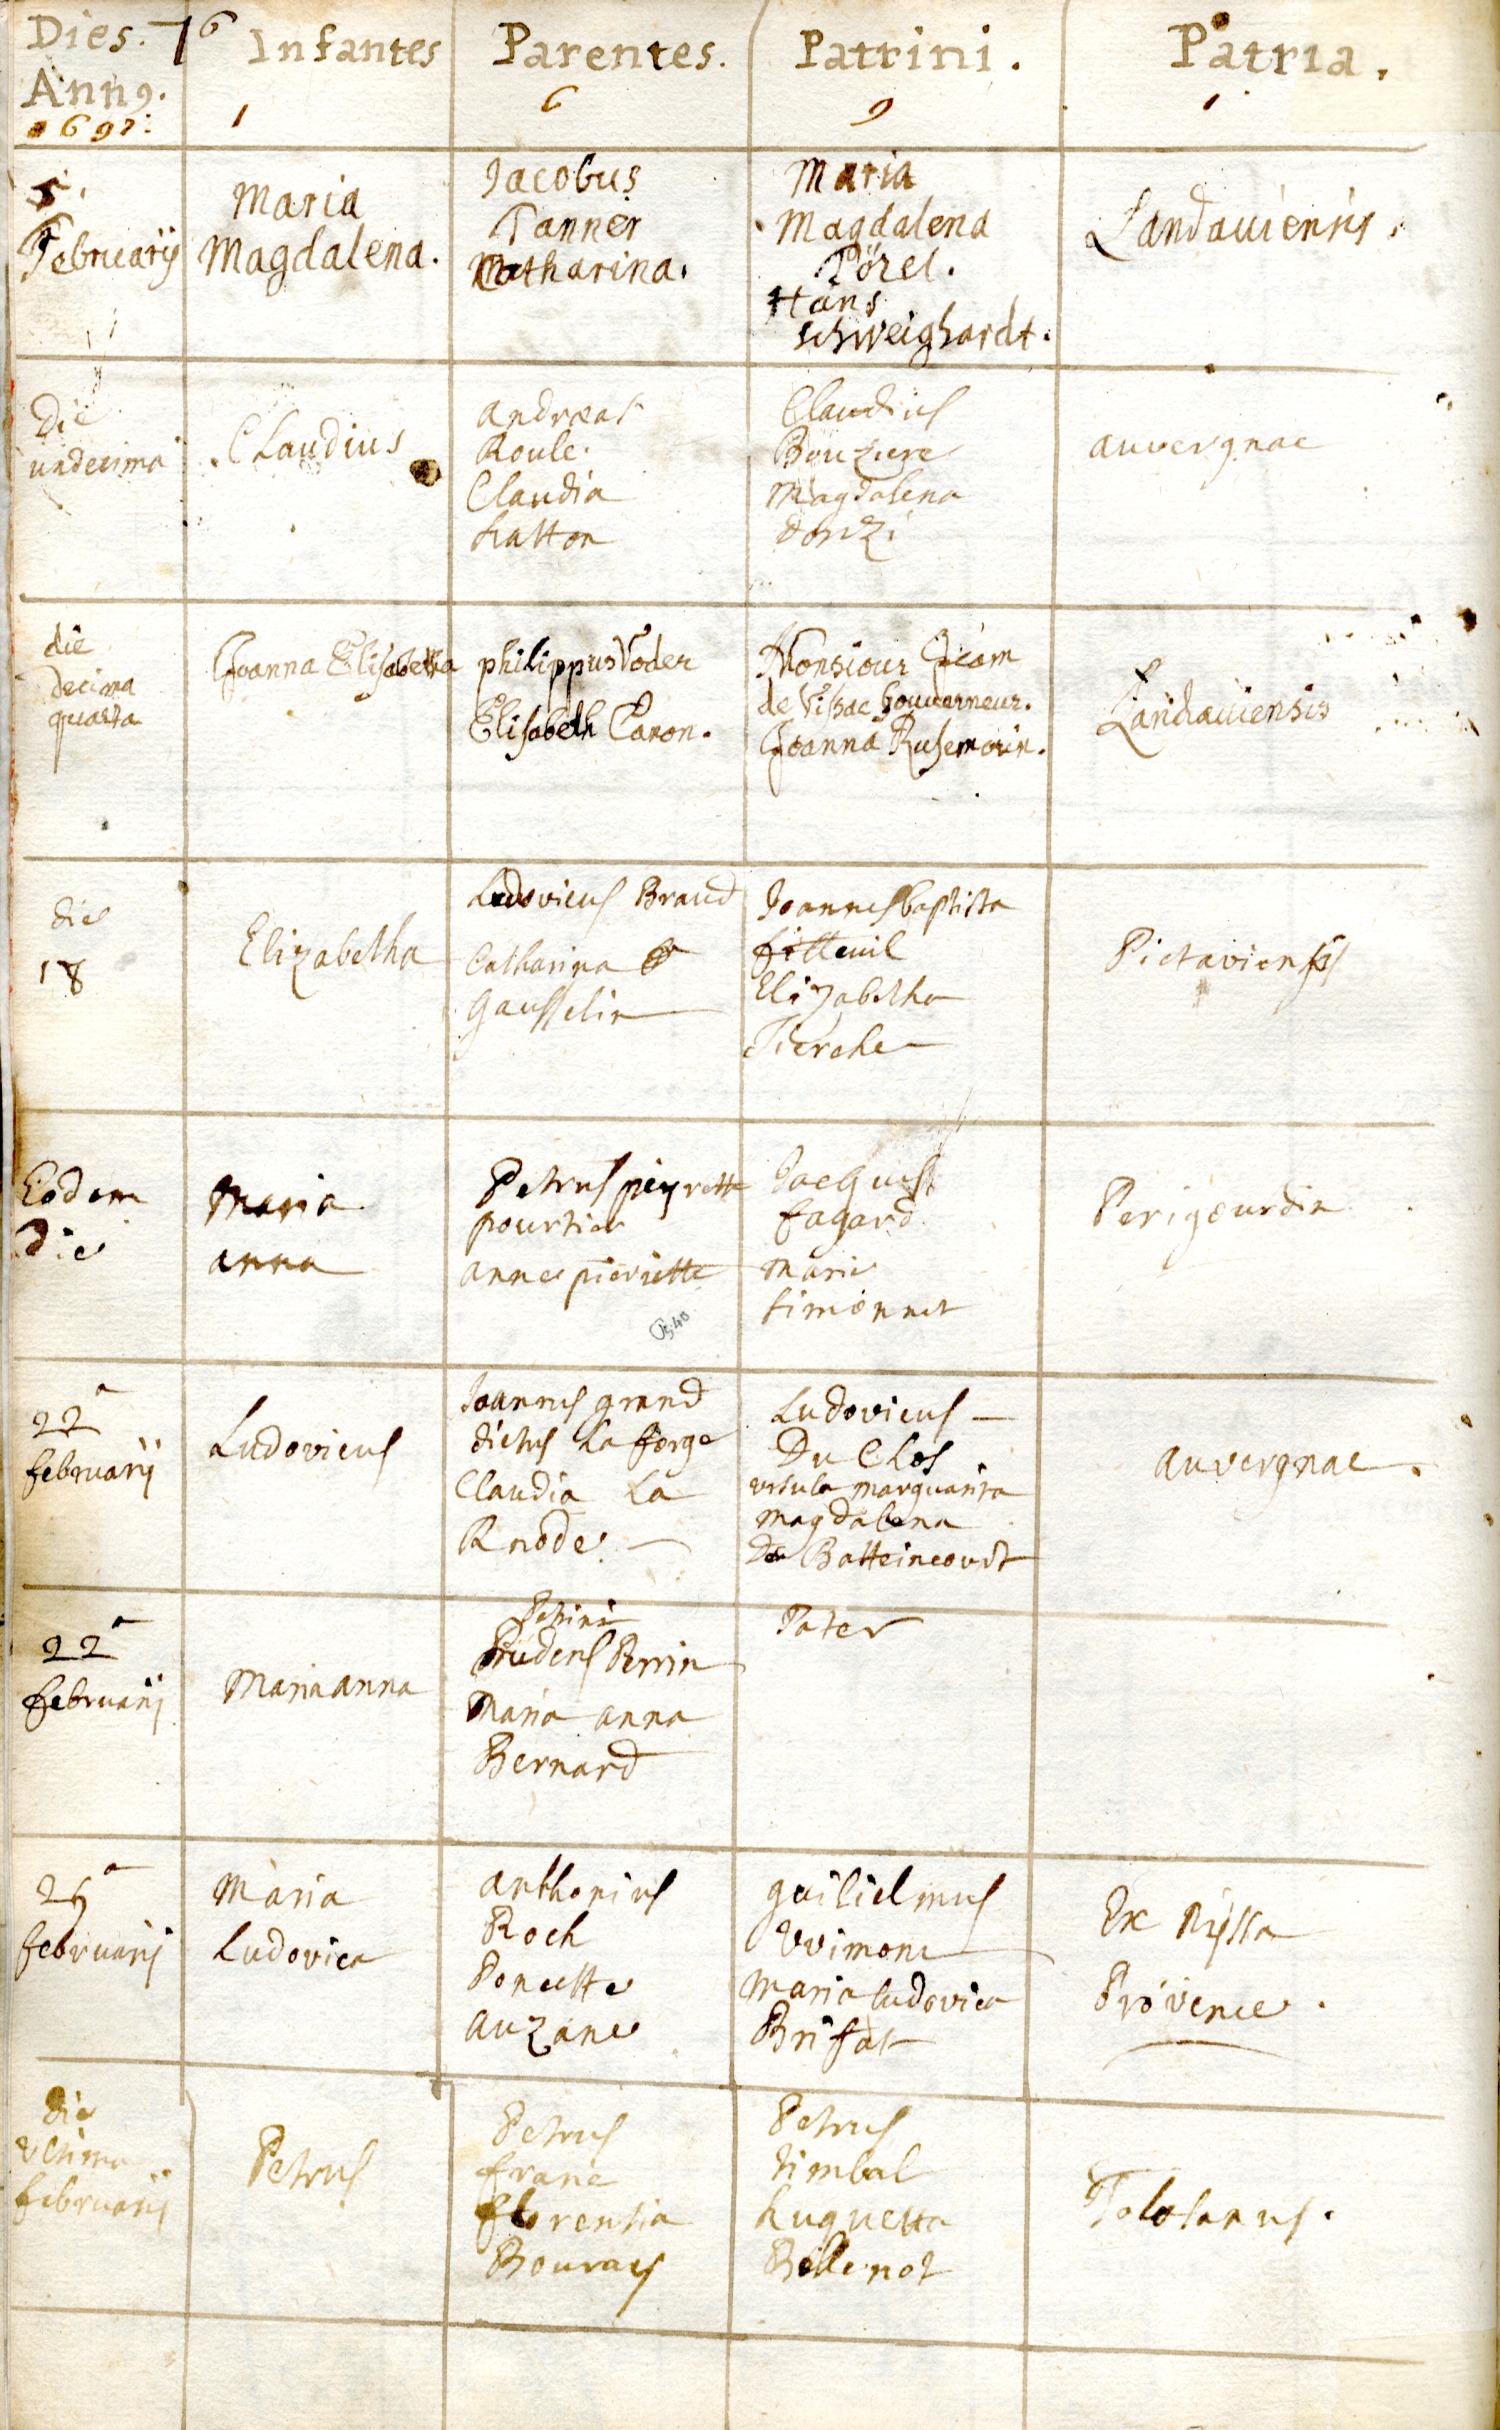 Dies. 76 Infantes Parentes. Patrini. Patria.
Ann9.
1 6 9 1
5. Februarij
Maria
Magdalena.
Jacobus
Tanner
Catharina.
Maria
Magdalena
Pözel.
Hans
schweighardt.
Landauiensis.
Die
undecima
Claudius
andreas
Roule.
Claudia
hatton
Claudius
Bouziere
Magdalena
auvergnae
die
decima
quarta
Joanna Elisabetha
philippus Voder
Elisabeth Caron.
Monsiour
de Vißac Gouuerneur.
Joanna Rusemorin.
Landauiensis
die
18
Elizabetha
Ludovicus Braud
Catharina
Gausselin
Joannes baptista
fitteuil
Elizabetha
Pictaviensis
Eodem
die
Maria
anna
Petrus peyrette
pourtier
anne pierrette
Jacques
fagard
marie
simonnet
Perigourdin
22a
februarij
Ludovicus
Joannes grand
dictus La forge
Claudia La
Rnode.
Ludovicus
Du Clos
ursula marguarita
magdalena
De Batteincourt
auvergnae.
22a
februarij
Maria anna
Prudens Perrin
Maria anna
Bernard
Pater
februarij
Maria
Ludovica
anthonius
Roch
Poncette
auzane
guilielmus
Vvimone
Maria ludovica
Ex
Provence.
die
ultima
februarij
Petrus
Petrus
franc
florentia
Petrus
timbal
huguetta
Tolosanus.